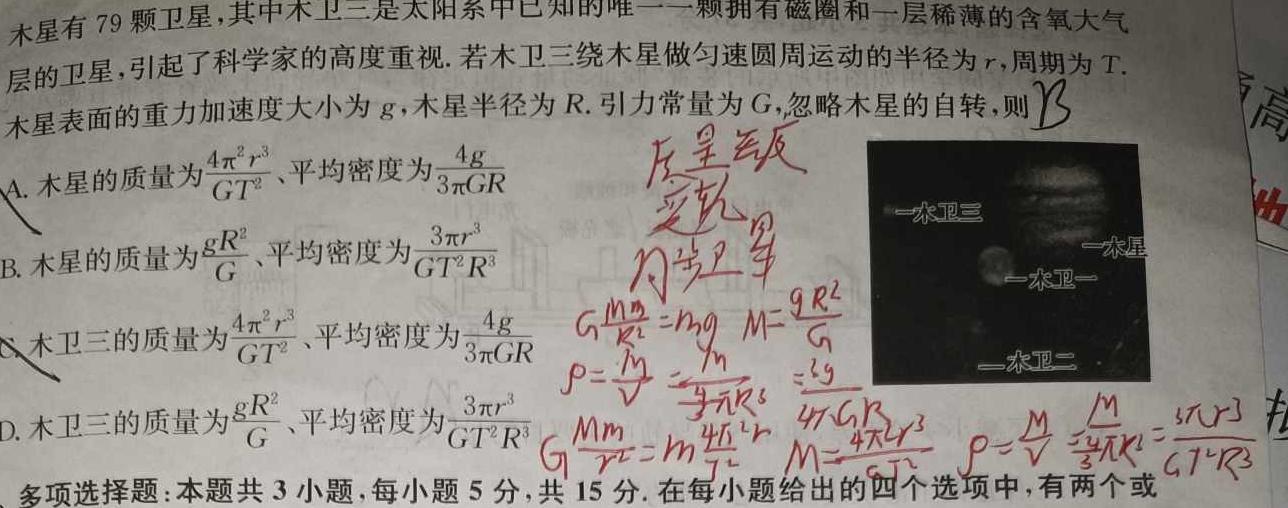 木星有 79 颗卫星,其中木卫三是太阳系中已知的唯一一颗拥有磁圈和一层稀薄的含氧大气
层的卫星,引起了科学家的高度重视. 若木卫三绕木星做匀速圆周运动的半径为 r,周期为 T.
木星表面的重力加速度大小为 g,木星半径为 R. 引力常量为 G,忽略木星的自转,则 B
A. 木星的质量为\frac{4π²r³}{GT²}、平均密度为\frac{4g}{3πGR}
B. 木星的质量为\frac{gR²}{G}、平均密度为\frac{3πr³}{GT²R³}
C. 木卫三的质量为\frac{4π²r³}{GT²}、平均密度为\frac{4g}{3πGR}
D. 木卫三的质量为\frac{gR²}{G}、平均密度为\frac{3πr³}{GT²R³}
木卫三
木星
木卫一
木卫二
G\frac{Mm}{R²}=mg M=\frac{gR²}{G}
ρ=\frac{M}{V}=\frac{M}{\frac{4}{3}πR³}=\frac{3g}{4πGR}
G\frac{Mm}{r²}=m\frac{4π²r}{T²} M=\frac{4π²r³}{GT²} ρ=\frac{M}{V}=\frac{M}{\frac{4}{3}πR³}=\frac{3πr³}{GT²R³}
多项选择题:本题共 3 小题,每小题 5 分,共 15 分. 在每小题给出的四个选项中,有两个或